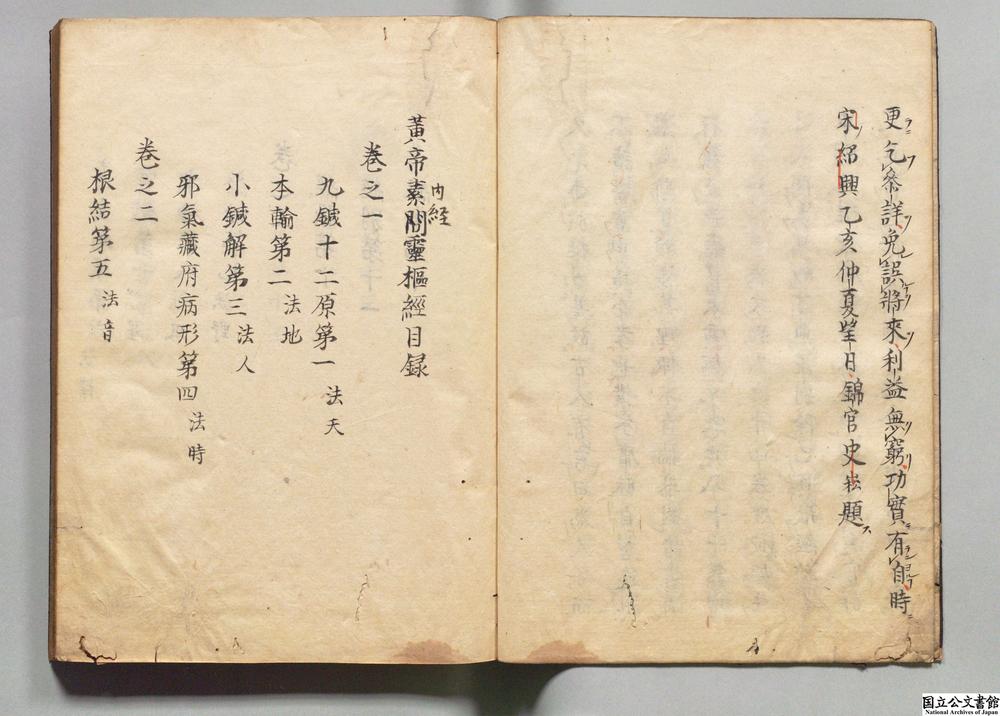 更乞參詳免誤將來利益無窮功實有自時
宋紹興乙亥仲夏望日錦官史崧題
黃帝素問靈樞經目録
内経
卷之一
九鍼十二原第一 法天
本輸第二 法地
小鍼解第三 法人
邪氣藏府病形第四 法時
卷之二
根結第五 法音
国立公文書館
National Archives of Japan